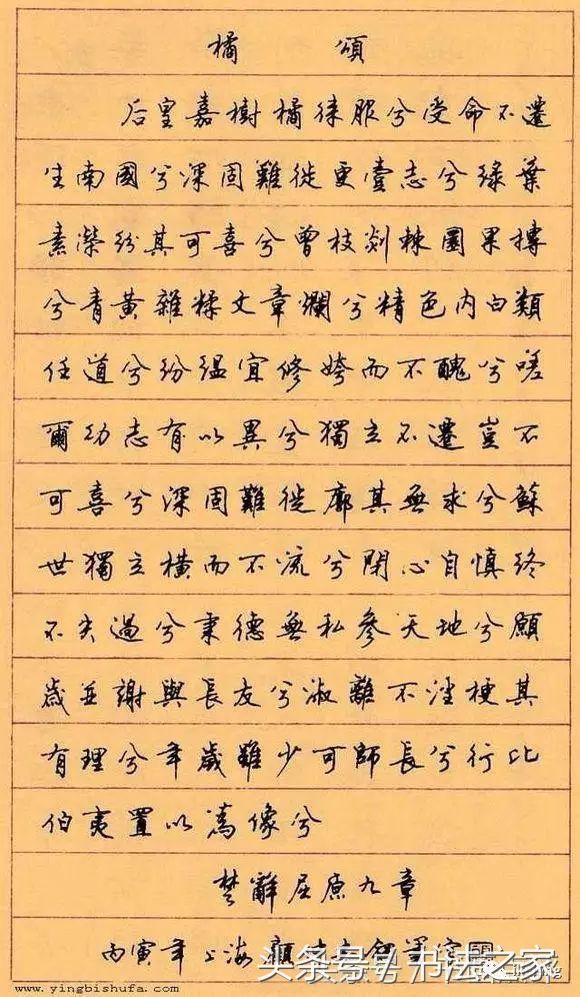 橘頌
后皇嘉樹橘徠服兮受命不遷
生南國兮深固難徙更壹志兮綠葉
素榮紛其可喜兮曾枝剡棘圜果摶
兮青黃雜糅文章爛兮精色內白類
任道兮紛緼宜修姱而不醜兮嗟
爾幼志有以異兮獨立不遷豈不
可喜兮深固難徙廓其無求兮蘇
世獨立橫而不流兮閉心自慎終
不失過兮秉德無私參天地兮願
歲並謝與長友兮淑離不淫梗其
有理兮年歲雖少可師長兮行比
伯夷置以為像兮
楚辭屈原九章
丙寅年上海顧
头条号 / 书法之家
www.yingbishufa.com